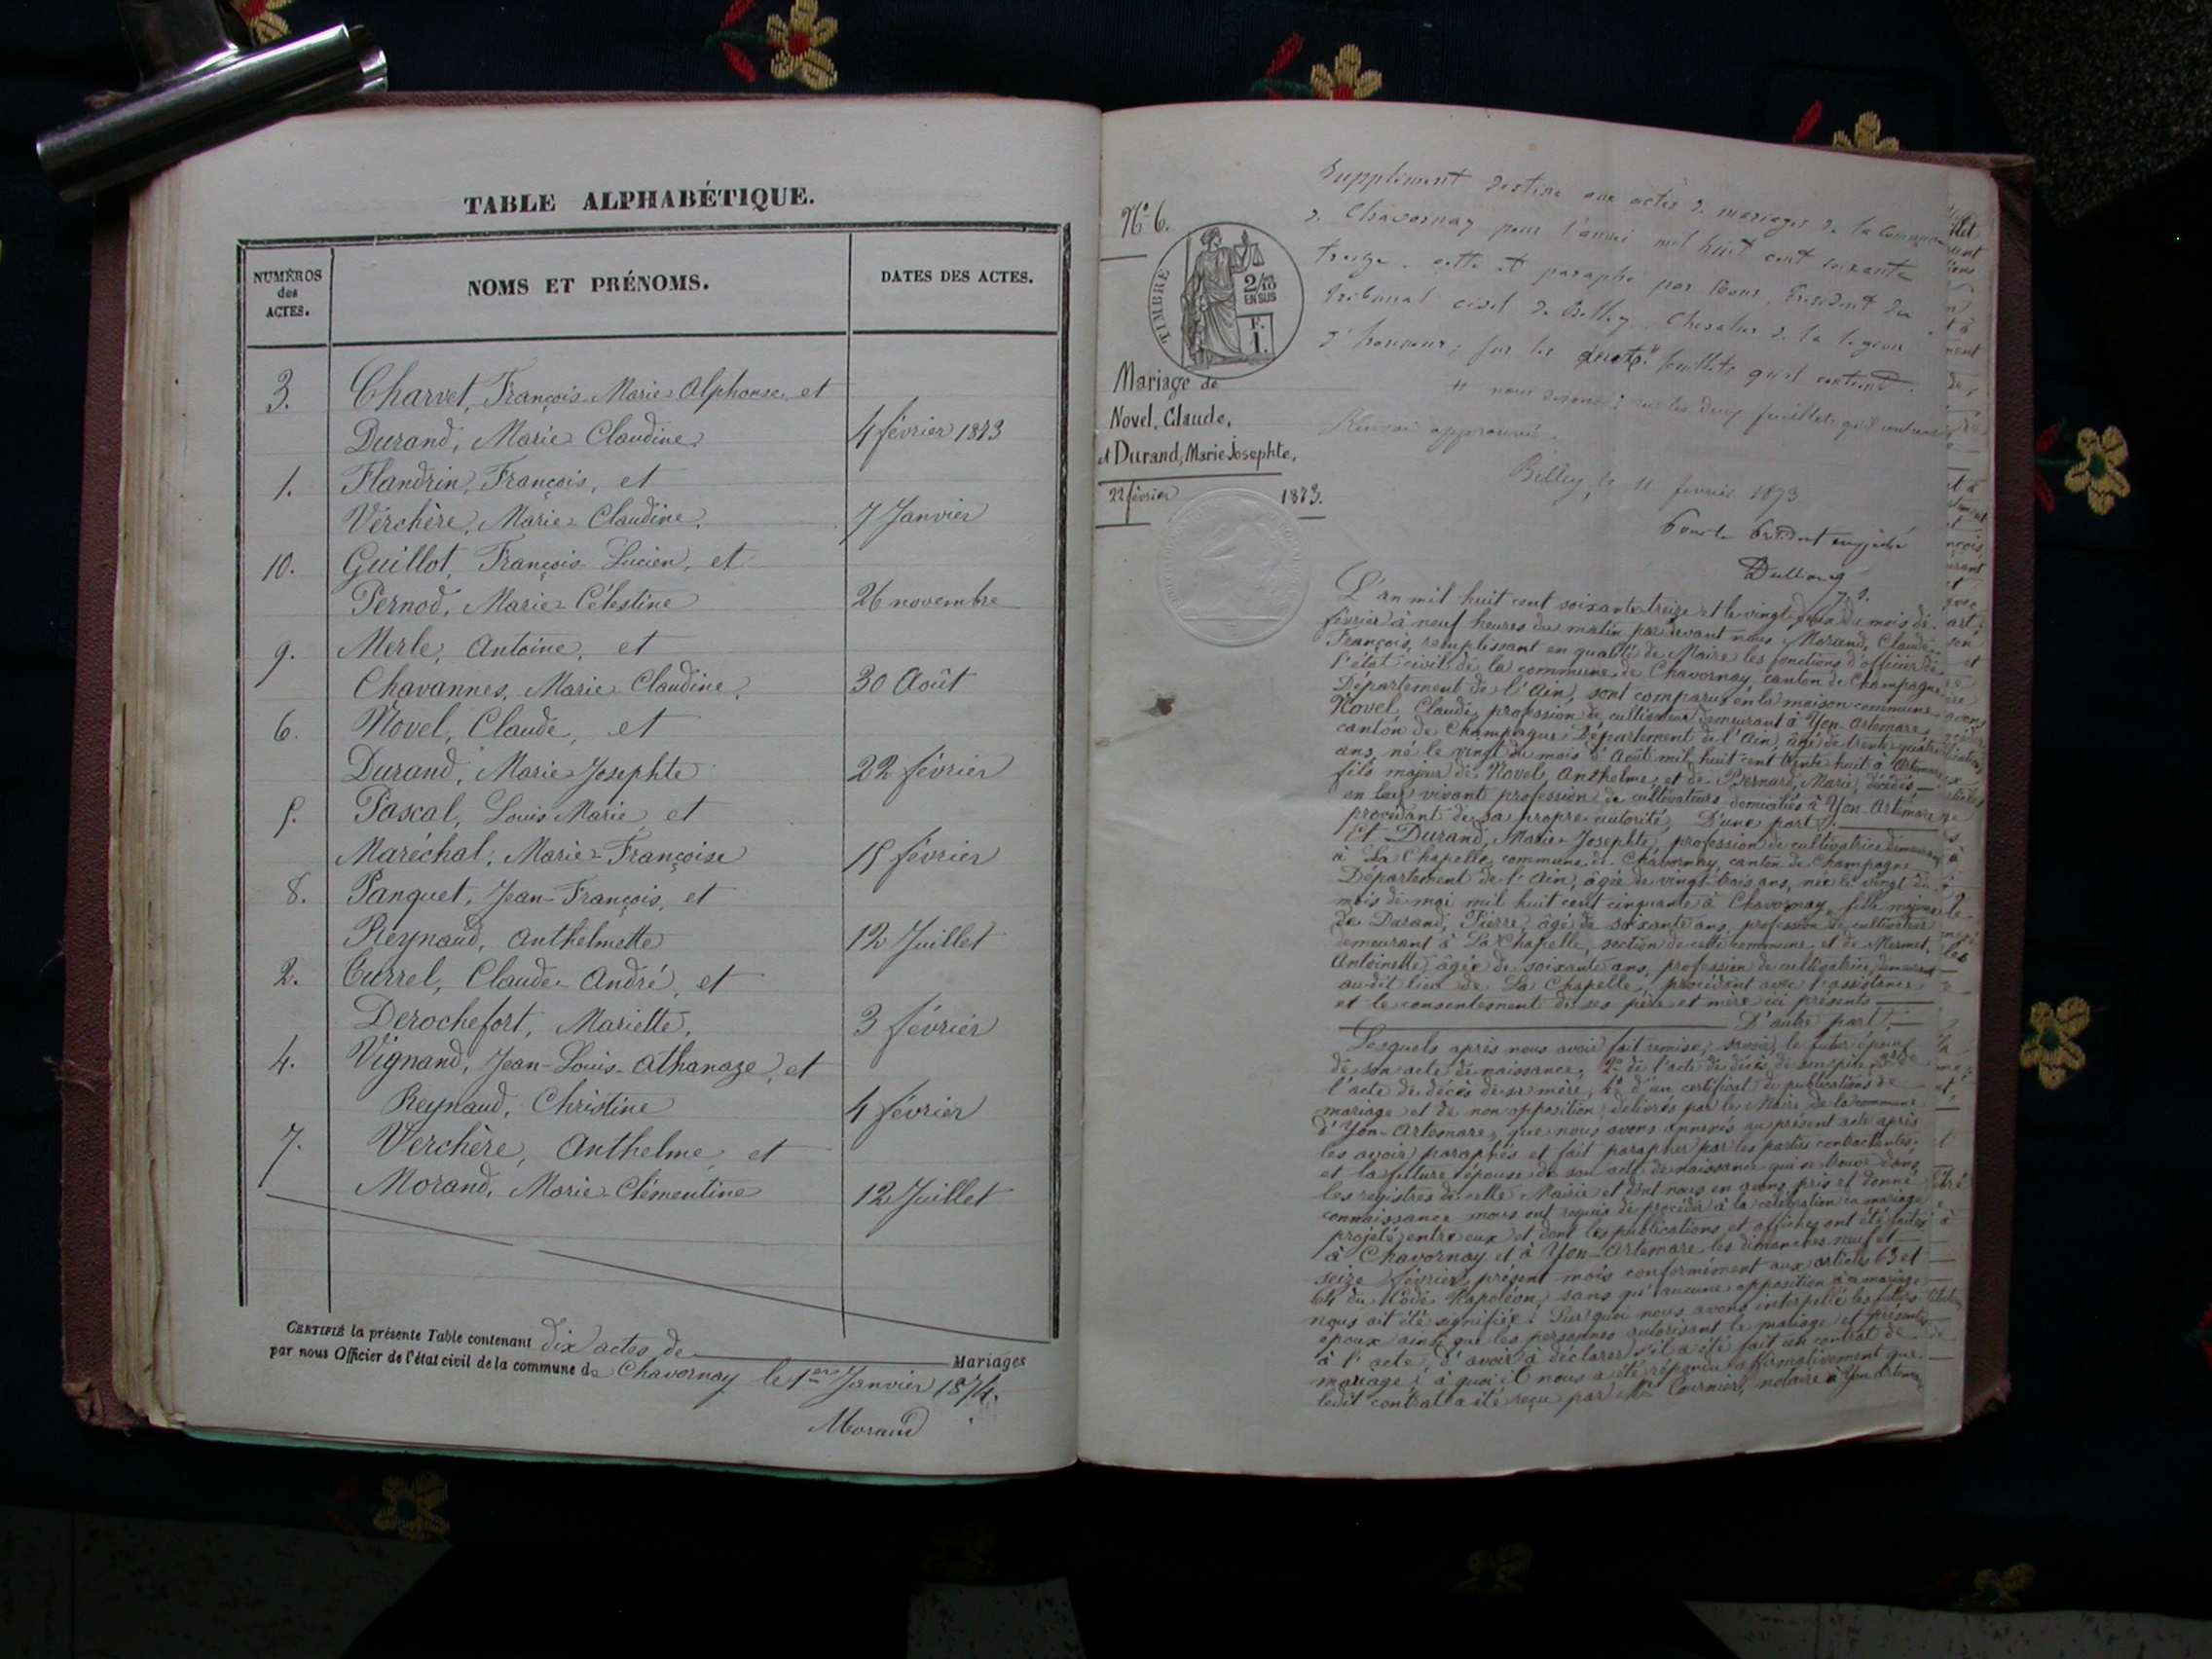 TABLE ALPHABÉTIQUE.
NUMÉROS des ACTES.
NOMS ET PRÉNOMS.
DATES DES ACTES.
3. Charvet, François-Marie-Alphonse, et
Durand, Marie Claudine, 4 février 1873
1. Flandrin, François, et
Verchère, Marie Claudine, 7 Janvier
10. Guillot, François Lucien, et
Pernod, Marie-Célestine 26 novembre
9. Merle, Antoine, et
Chavannes, Marie Claudine, 30 Août
6. Novel, Claude, et
Durand, Marie-Josephte 22 février
5. Pascal, Louis Marie, et
Maréchal, Marie-Françoise 15 février
8. Panquet, Jean-François, et
Reynaud, Anthelmette 12 Juillet
2. Currel, Claude-André, et
Derochefort, Mariette, 3 février
4. Vignand, Jean-Louis-Athanaze, et
Reynaud, Christine 4 février
7. Verchère, Anthelme, et
Morand, Marie-Clémentine 12 Juillet
CERTIFIÉ la présente Table contenant dix actes de Mariages
par nous Officier de l'état civil de la commune de Chavornay le 1er Janvier 1874.
Morand
N° 6.
TIMBRE
2/10
EN SUS
F.
1.
Mariage de
Novel, Claude,
et Durand, Marie Josephte,
22 février 1873.
Supplément destiné aux actes de mariages de la Commune
de Chavornay pour l'année mil huit cent soixante
treize, cotté et paraphé par Nous, Président du
Tribunal civil de Belley, Chevalier de la légion
d'honneur, sur les feuillets qu'il contient.
Renvoi approuvé.
Belley, le 11 février 1873
Pour le Président empêché
L'an mil huit cent soixante-treize et le vingt-deux du mois de
février à neuf heures du matin par devant nous Morand, Claude-
François, remplissant en qualité de Maire les fonctions d'officier de
l'état civil de la commune de Chavornay, canton de Champagne
Département de l'Ain, sont comparus en la maison commune
Novel, Claude, profession de cultivateur demeurant à Yon-Artemare,
canton de Champagne, Département de l'Ain, âgé de trente quatre
ans, né le vingt du mois d'Août mil huit cent trente huit à Artemare
fils majeur de Novel, Anthelme, et de Bernard, Marie, décédés,
en leur vivant profession de cultivateurs, domiciliés à Yon-Artemare
procédant de sa propre autorité, D'une part;
Et Durand, Marie-Josephte, profession de cultivatrice demeurant
à La Chapelle, commune de Chavornay, canton de Champagne
Département de l'Ain, âgée de vingt-trois ans, née le vingt du
mois de mai mil huit cent cinquante à Chavornay, fille majeure
de Durand, Pierre, âgé de soixante ans, profession de cultivateur
demeurant à La Chapelle, section de cette commune, et de Mermet,
Antoinette, âgée de soixante ans, profession de cultivatrice, demeurant
audit lieu de La Chapelle, procédant avec l'assistance
et le consentement de ses père et mère ici présents
D'autre part,
Lesquels après nous avoir fait remise, savoir, le futur époux
de son acte de naissance, 2° de l'acte de décès de son père, 3° de
l'acte de décès de sa mère, 4° d'un certificat de publications de
mariage et de non opposition, délivrés par le Maire de la commune
d'Yon-Artemare, que nous avons annexés au présent acte après
les avoir paraphés et fait parapher par les parties contractantes.
et la future épouse de son acte de naissance qui se trouve dans
les registres de cette Mairie et dont nous en avons pris et donné
connaissance nous ont requis de procéder à la célébration du mariage
projeté entre eux et dont les publications et affiches ont été faites
à Chavornay et à Yon-Artemare les dimanches neuf et
seize février présent mois conformément aux articles 63 et
64 du Code Napoléon, sans qu'aucune opposition à ce mariage
nous ait été signifiée. Sur quoi nous avons interpellé les futurs
époux ainsi que les personnes autorisant le mariage et présentes
à l'acte, d'avoir à déclarer s'il a été fait un contrat de
mariage; à quoi il nous a été répondu affirmativement que
ledit contrat a été reçu par Me Cournier, notaire à Yon Artemare